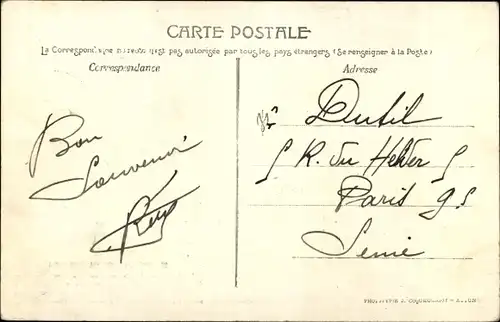 CARTE POSTALE
La Correspondance au recto n'est pas autorisée par tous les pays étrangers (Se renseigner à la Poste)
Correspondance
Adresse
Bon
Souvenir
Mr Dutil
5 R. du Helder 5
Paris 9e
Seine